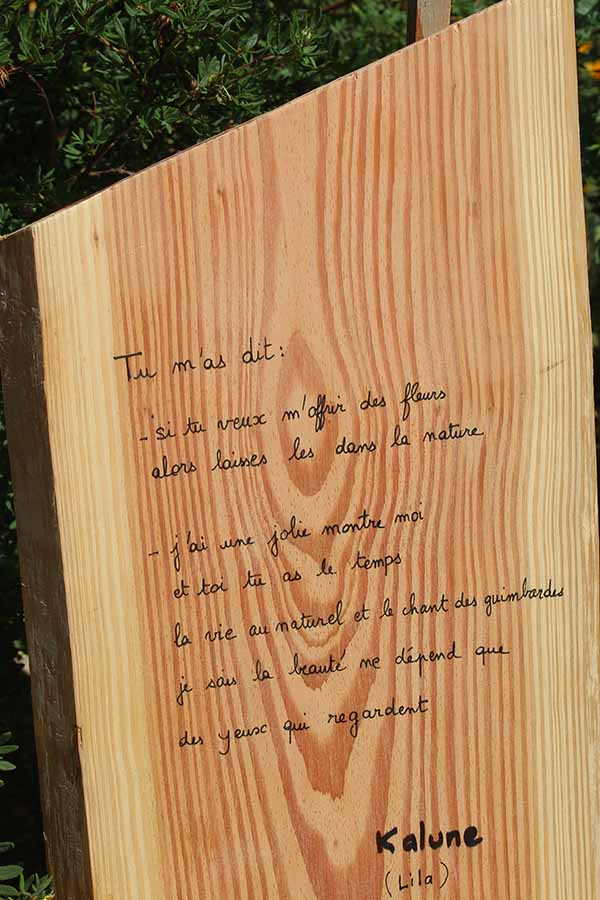 Tu m'as dit:
- si tu veux m'offrir des fleurs
alors laisses les dans la nature
- j'ai une jolie montre moi
et toi tu as le temps
la vie au naturel et le chant des guimbardes
je sais la beauté ne dépend que
des yeux qui regardent
Kalune
(Lila)